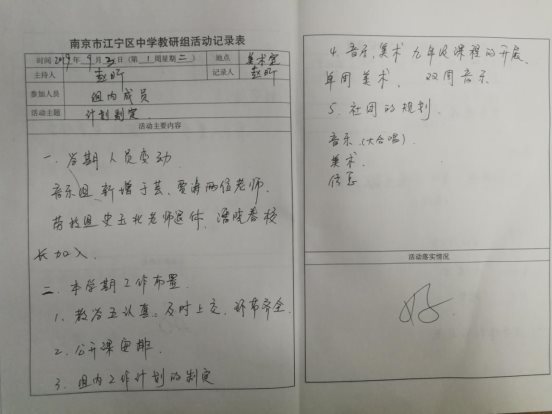 南京市江宁区中学教研组活动记录表
时间 2019年9月3日(第1周星期二) 地点 美术室
主持人 赵昕 记录人 赵昕
参加人员 组内成员
活动主题 计划制定
活动主要内容
一. 学期人员变动
音乐组 新增于芸、贾涛两位老师.
劳技组史玉花老师退休, 潘晓春校
长加入.
二. 本学期工作布置
1. 教学五认真. 及时上交. 环节齐全.
2. 公开课安排.
3. 组内工作计划的制定
4. 音乐、美术 九年级课程的开展、
单周美术、 双周音乐
5. 社团的规划.
音乐.(大合唱)
美术.
信息
活动落实情况
好